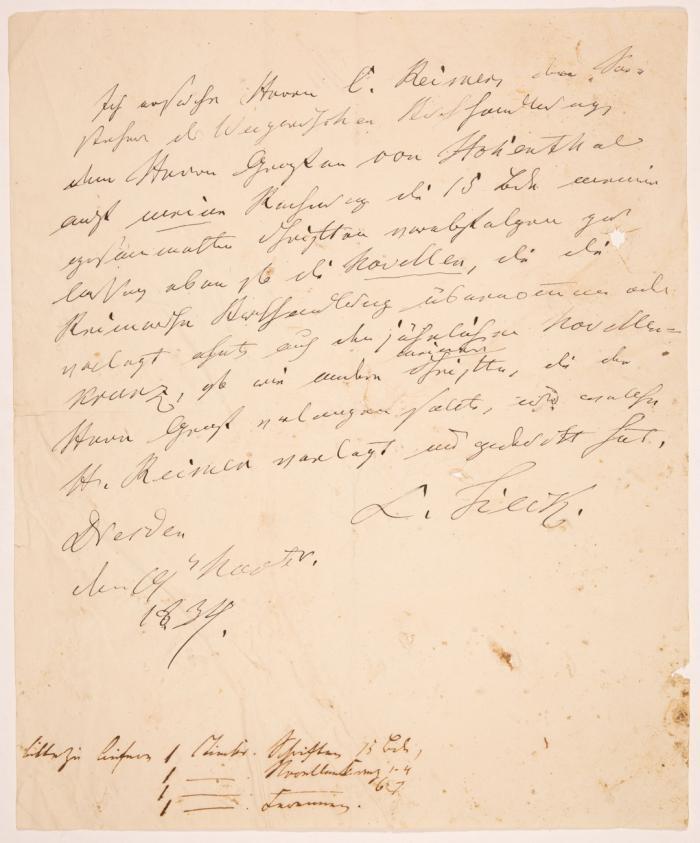 Ich ersuche Herrn C. Reimer, den Vor-
steher der Weygandschen Buchhandlung,
dem Herrn Grafen von Hohenthal
auf meine Rechnung die 15 Bde meiner
gesammelten Schriften verabfolgen zu
lassen, eben so die Novellen, die die
Reimersche Buchhandlung übernommen oder
verlegt hat, auch den jährlichen Novellen-
kranz, so wie andere meiner Schriften, die der
Herr Graf verlangen sollte, und welche
Hr. Reimer verlegt und gedruckt hat.
L. Tieck.
Dresden
den 19 Novbr.
1834.
liefern 1 Schriften 15 Bde,
1 — Novellenkranz 1-4
1 —
1 —